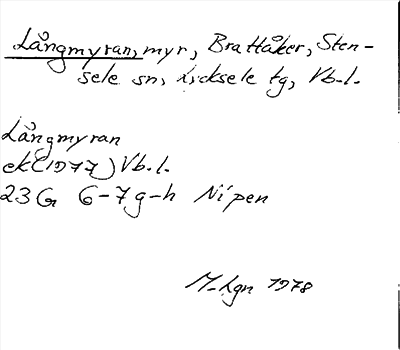 Långmyran, myr, Brattåker, Sten-
sele sn, Lycksele tg, Vb.l.
Långmyran
ek(1977) Vb.l.
23G 6-7g-h Nipen
M-Lgn 1978